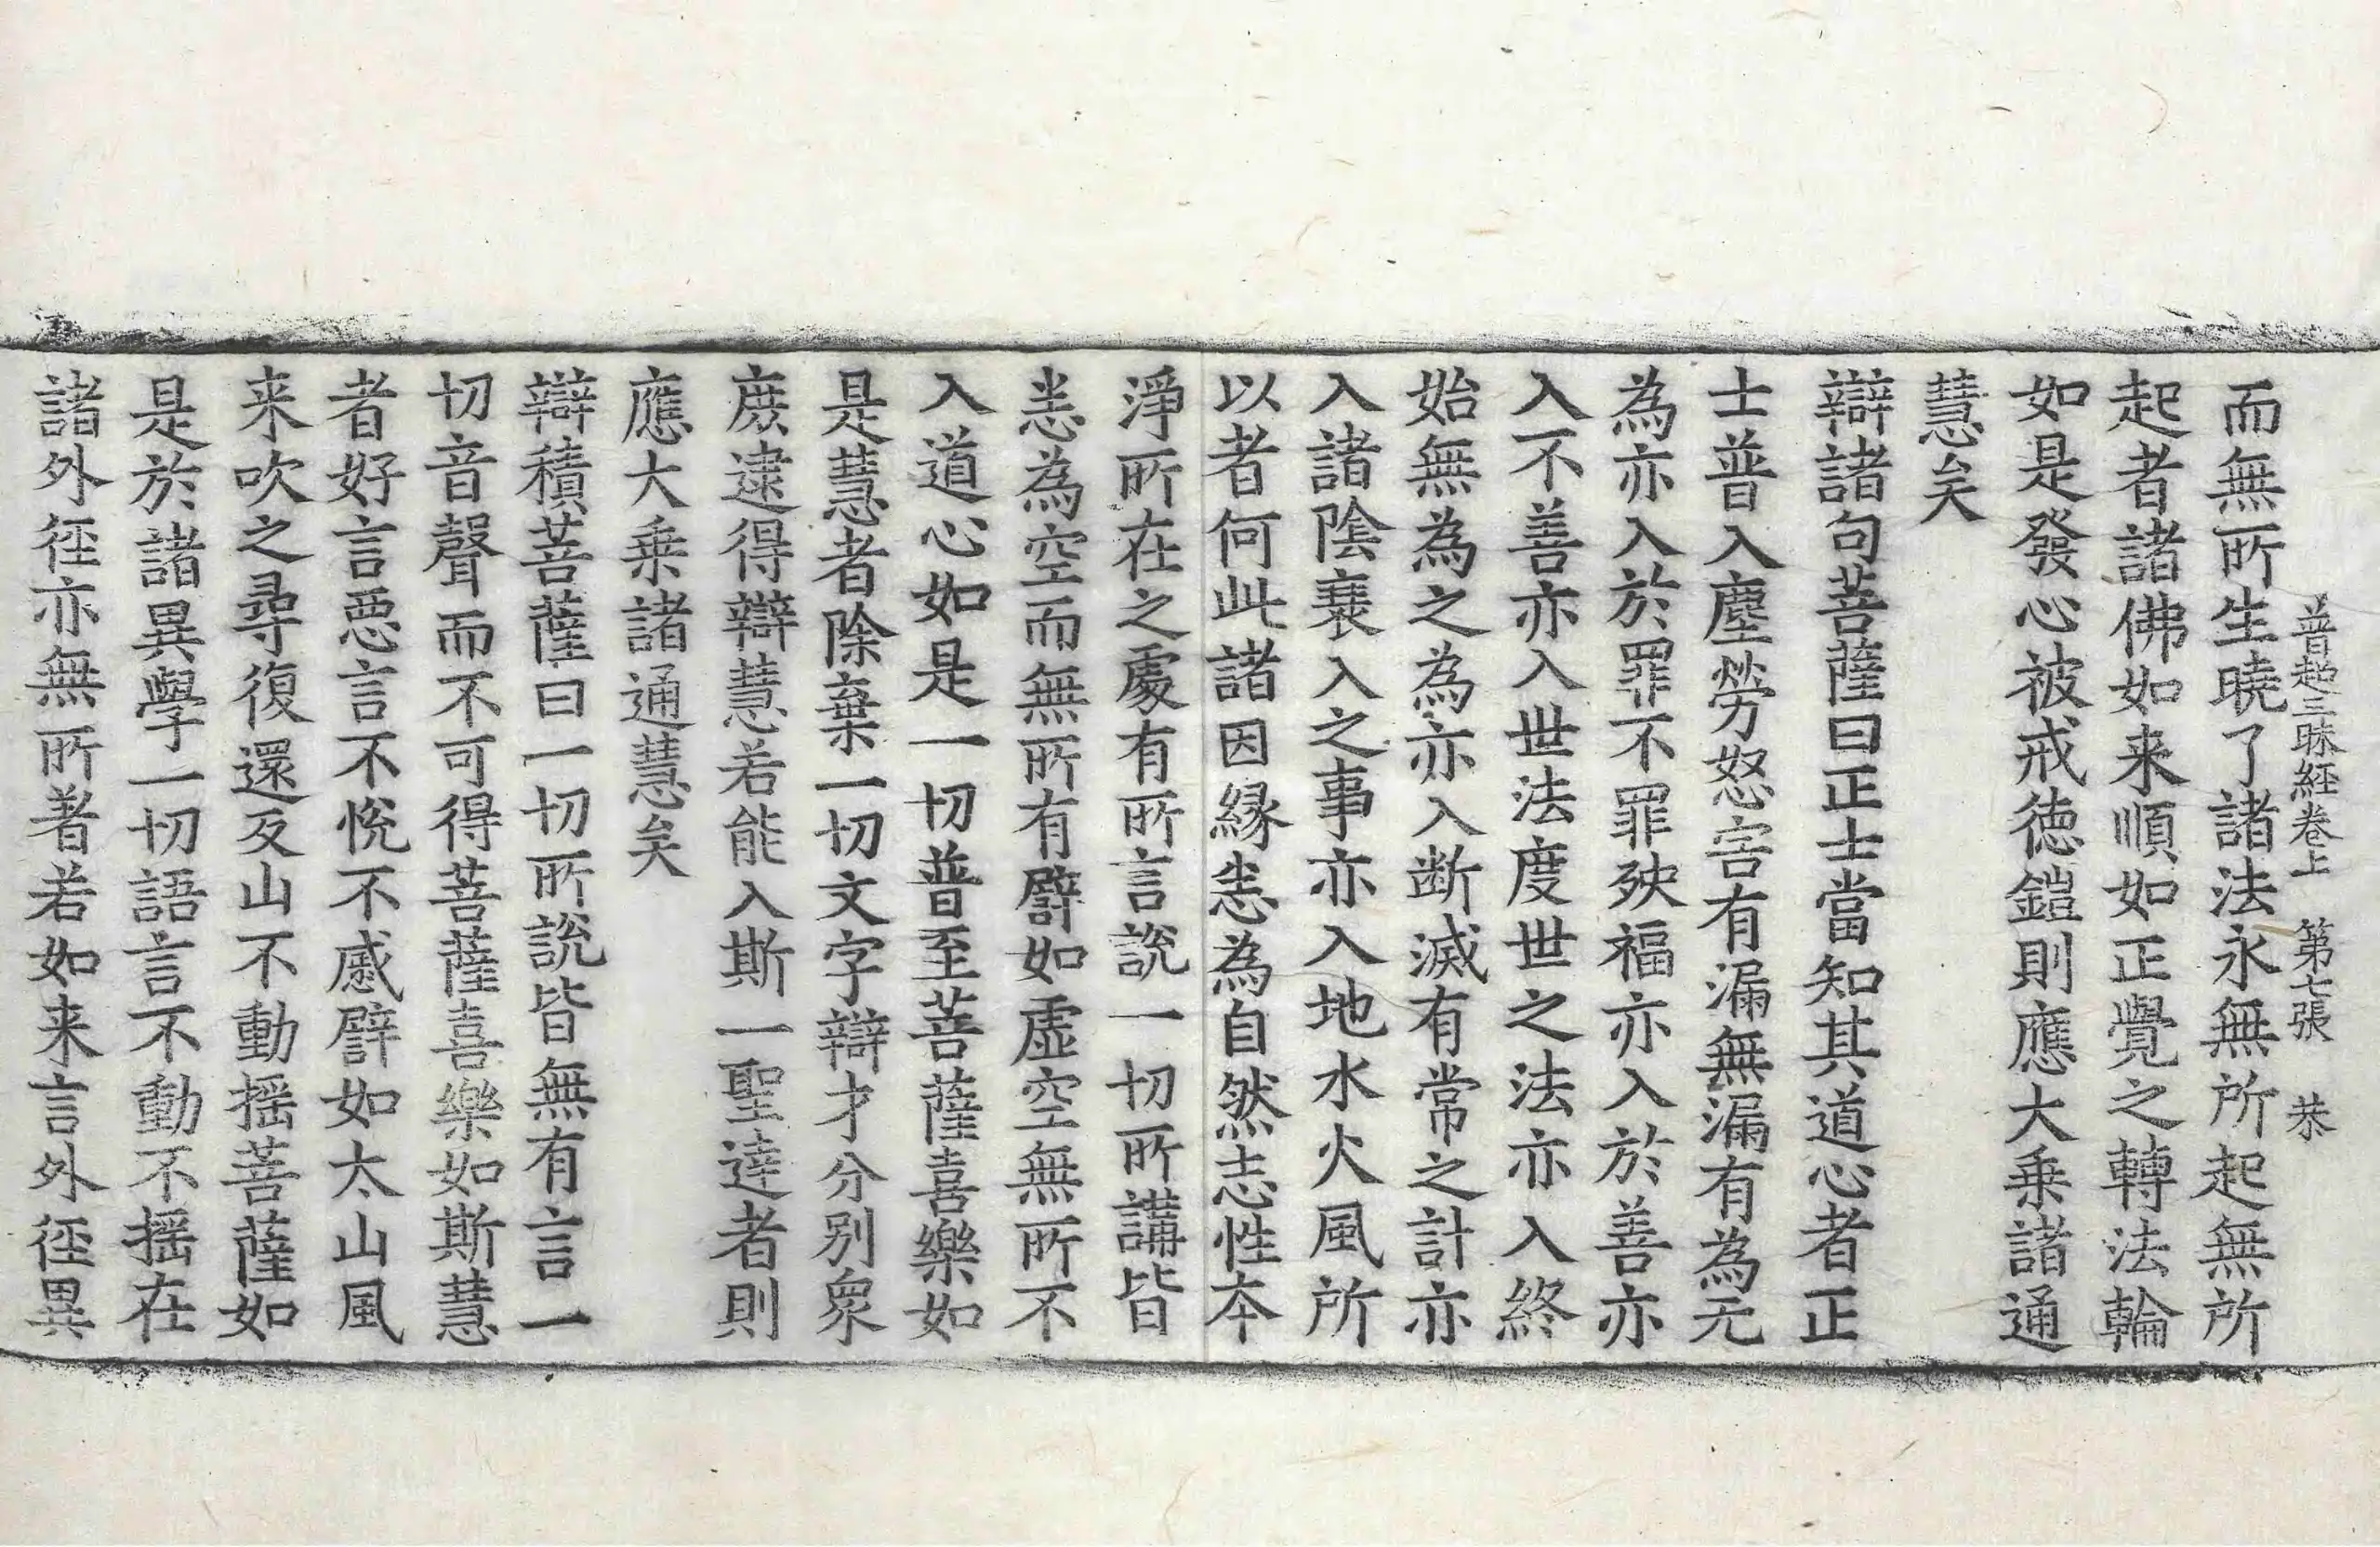 普超三昧經卷上　第七張　恭
而無所生曉了諸法永無所起無所
起者諸佛如来順如正覺之轉法輪
如是發心被戒德鎧則應大乗諸通
慧矣
辯諸句菩薩曰正士當知其道心者正
士普入塵勞怒害有漏無漏有為无
為亦入於罪不罪殃福亦入於善亦
入不善亦入世法度世之法亦入終
始無為之為亦入断滅有常之計亦
入諸陰蓑入之事亦入地水火風所
以者何此諸因緣恚為自然志性本
淨所在之處有所言說一切所講皆
恚為空而無所有譬如虛空無所不
入道心如是一切普至菩薩喜樂如
是慧者除棄一切文字辯才分别衆
庻逮得辯慧若能入斯一聖達者則
應大乗諸通慧矣
辯積菩薩曰一切所說皆無有言一
切音聲而不可得菩薩喜樂如斯慧
者好言惡言不恱不慼譬如太山風
来吹之尋復還反山不動揺菩薩如
是於諸異學一切語言不動不揺在
諸外徑亦無所著若如来言外徑異